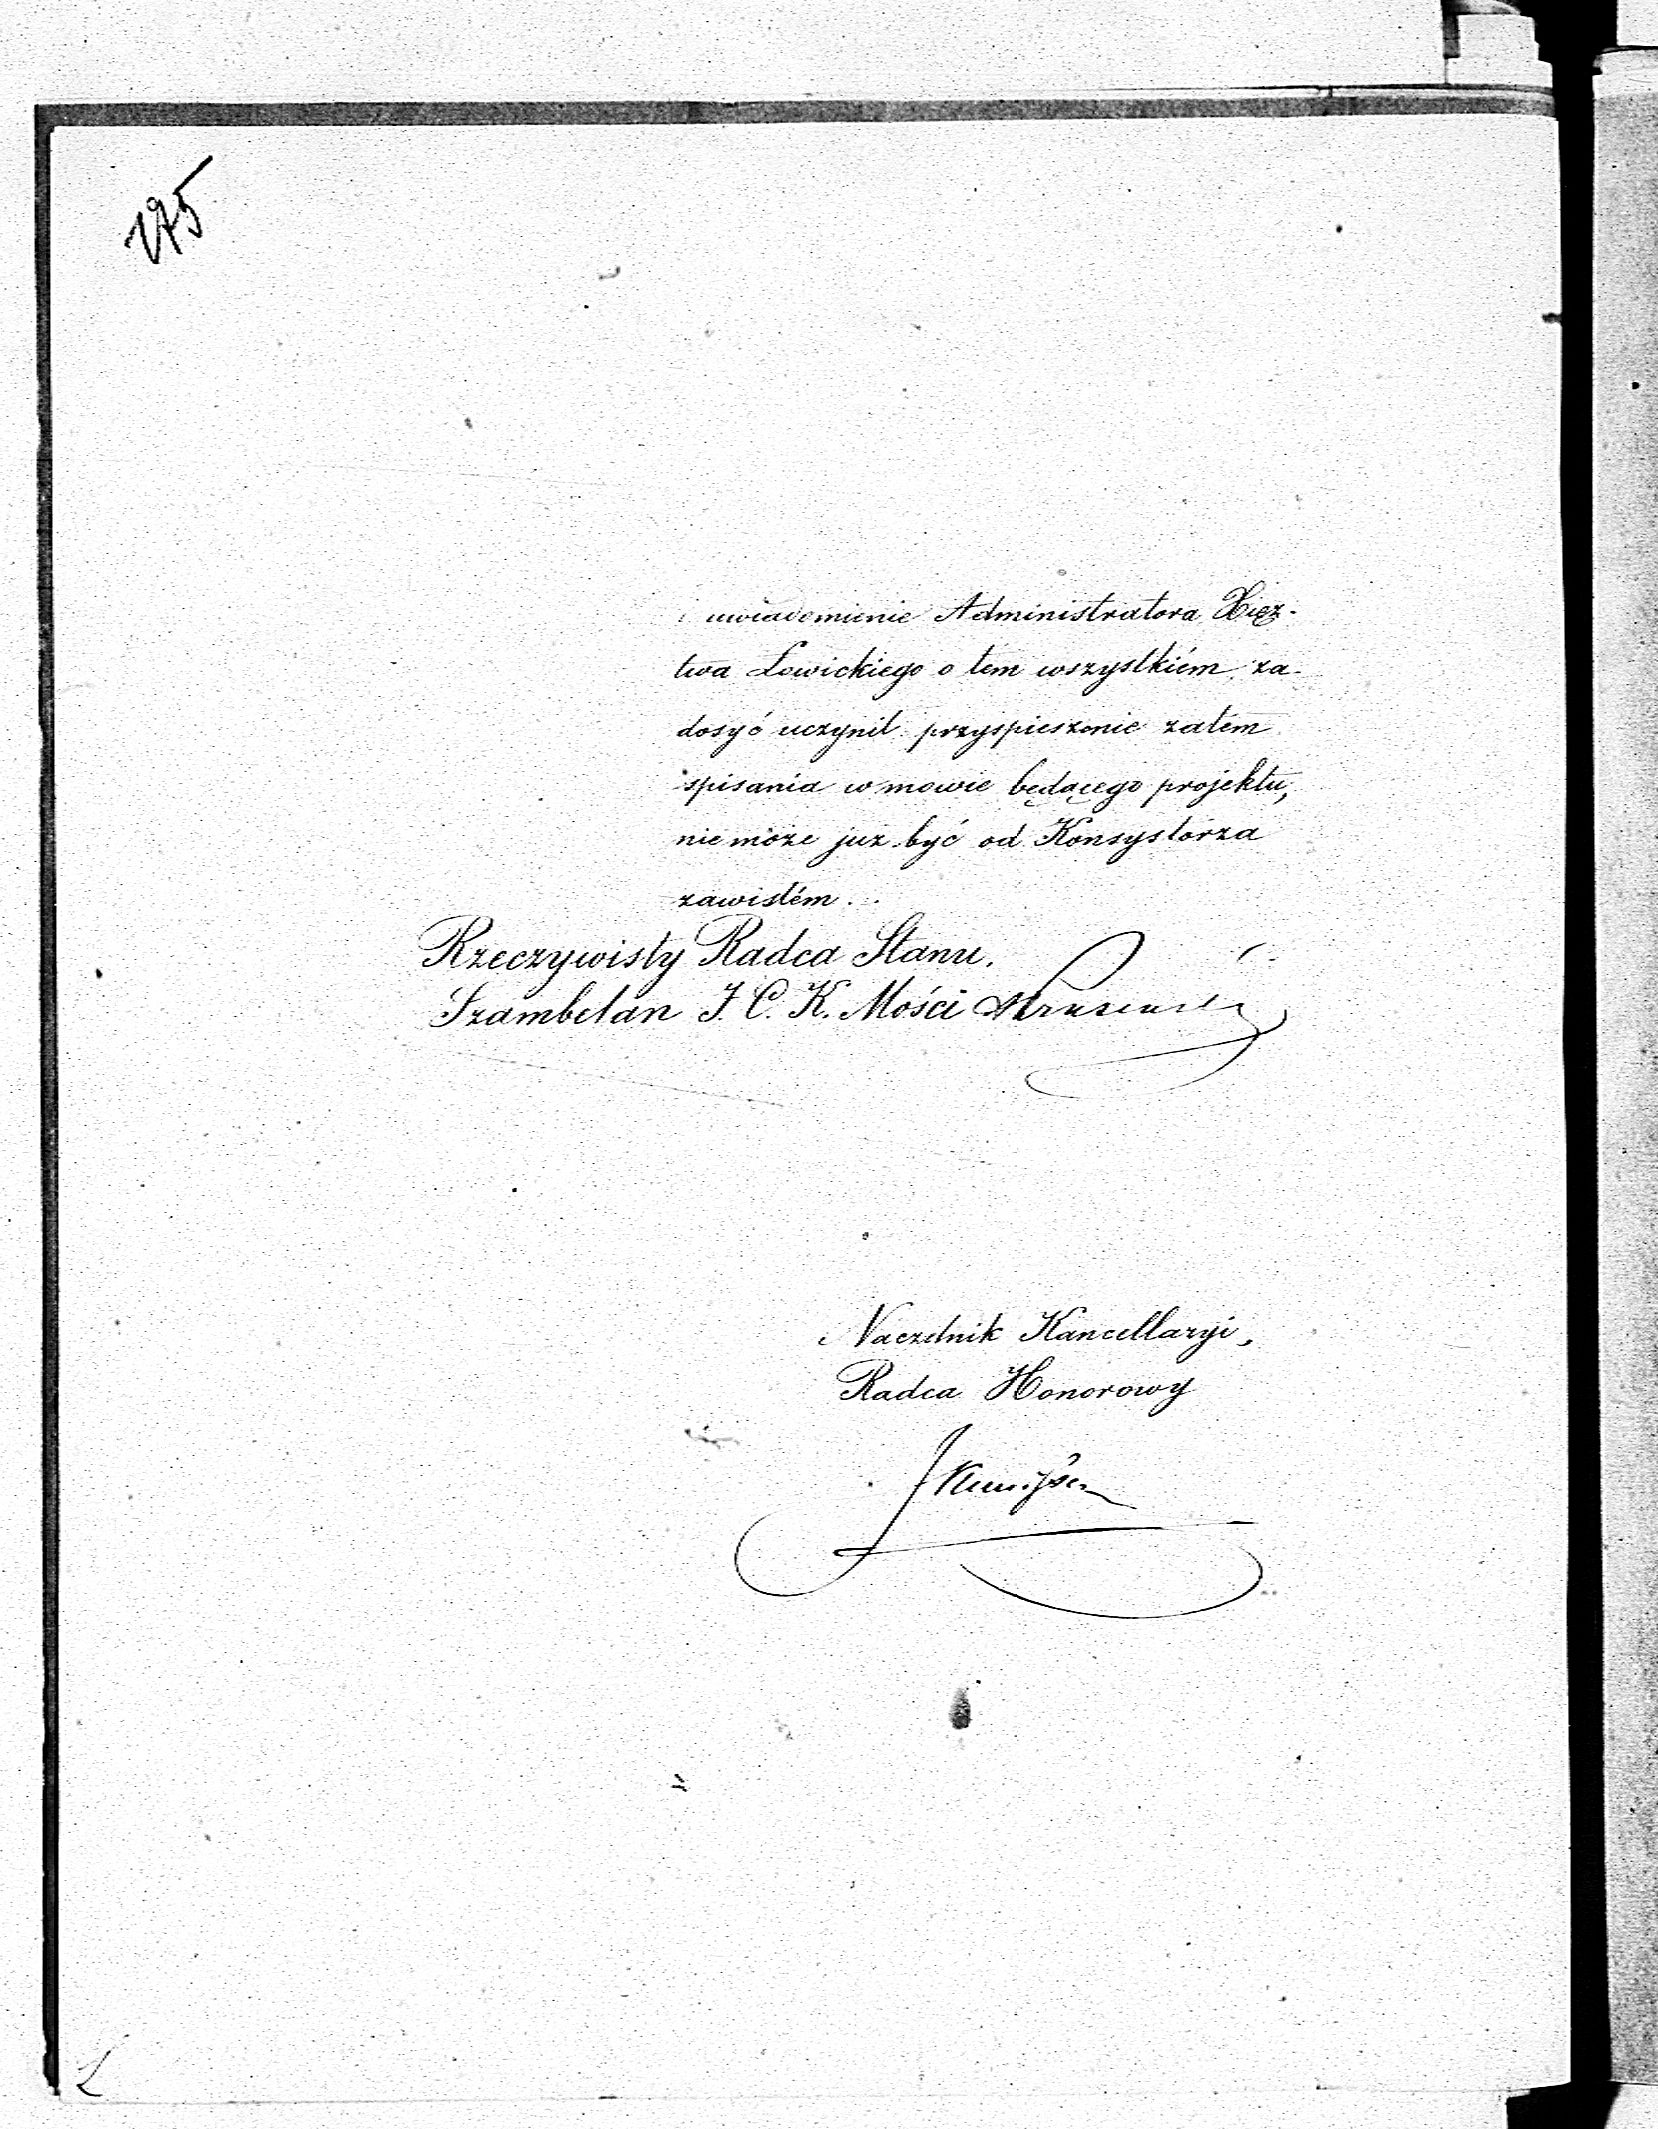 175
i uwiadomienie Administratora Xięz-
twa Łowickiego o tem wszystkiém za-
dosyć uczynił. przyspieszenie zatem
spisania w mowie będącego projektu,
nie może już być od Konsystorza
zawisłém.
Rzeczywisty Radca Stanu.
Szambelan J. C. K. Mości
Naczelnik Kancellaryi,
Radca Honorowy